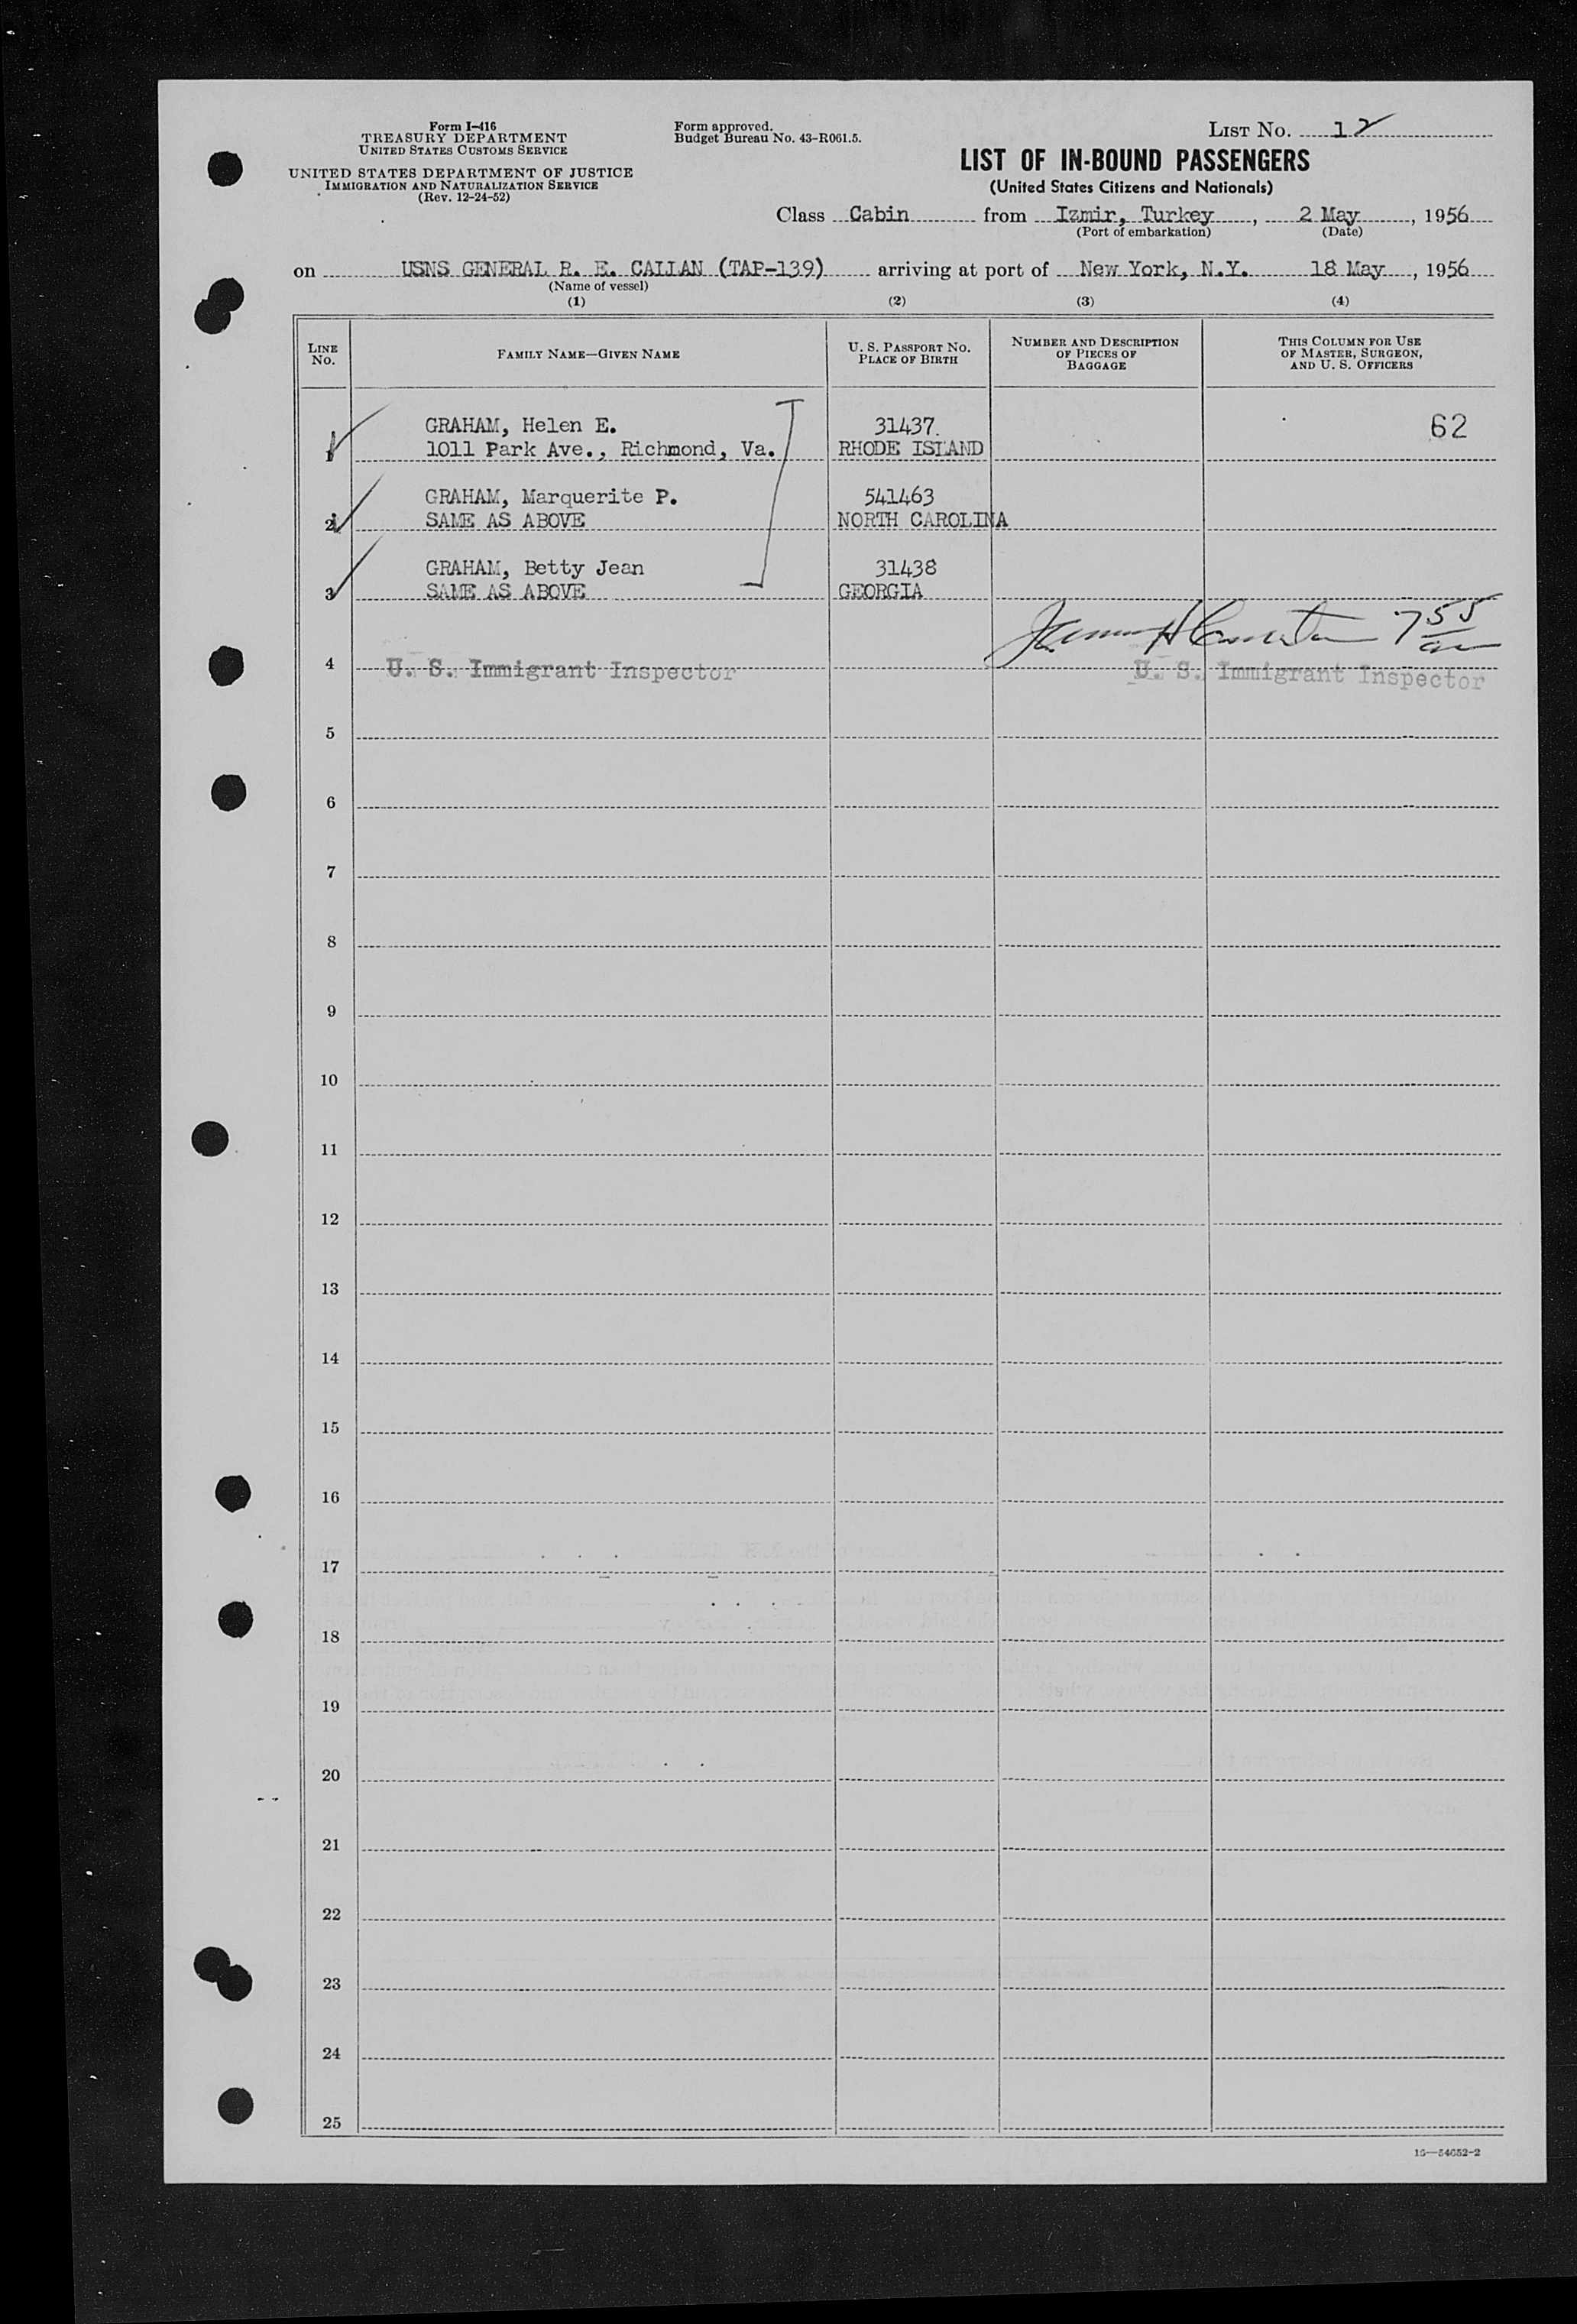 Form I-416
TREASURY DEPARTMENT
UNITED STATES CUSTOMS SERVICE
UNITED STATES DEPARTMENT OF JUSTICE
IMMIGRATION AND NATURALIZATION SERVICE
(Rev. 12-24-52)
Form approved.
Budget Bureau No. 43-R061.5.
LIST NO. 12
LIST OF IN-BOUND PASSENGERS
(United States Citizens and Nationals)
Class Cabin from Izmir, Turkey, 2 May, 1956
(Port of embarkation) (Date)
on USNS GENERAL R. E. CALLAN (TAP-139) arriving at port of New York, N.Y. 18 May, 1956
(Name of vessel)
(1) (2) (3) (4)
LINE NO.
FAMILY NAME—GIVEN NAME
U. S. PASSPORT NO.
PLACE OF BIRTH
NUMBER AND DESCRIPTION
OF PIECES OF
BAGGAGE
THIS COLUMN FOR USE
OF MASTER, SURGEON,
AND U. S. OFFICERS
GRAHAM, Helen E. 31437 62
1 1011 Park Ave., Richmond, Va. RHODE ISLAND
GRAHAM, Marquerite P. 541463
2 SAME AS ABOVE NORTH CAROLINA
GRAHAM, Betty Jean 31438
3 SAME AS ABOVE GEORGIA
755
4 U. S. Immigrant Inspector U. S. Immigrant Inspector
5
6
7
8
9
10
11
12
13
14
15
16
17
18
19
20
21
22
23
24
25
16—54652-2